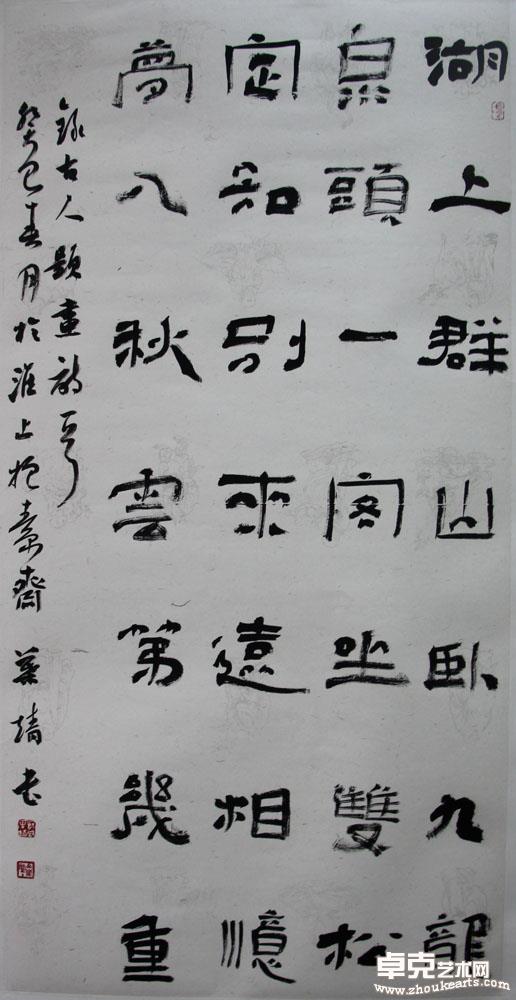 湖上群山臥九龍
泉頭一閣坐雙松
定知別來遠相憶
夢入秋雲第幾重
錄古人題畫詩一首
癸巳春月於淮上抱素齋 葉靖書
卓克艺术网
www.zhoukearts.com